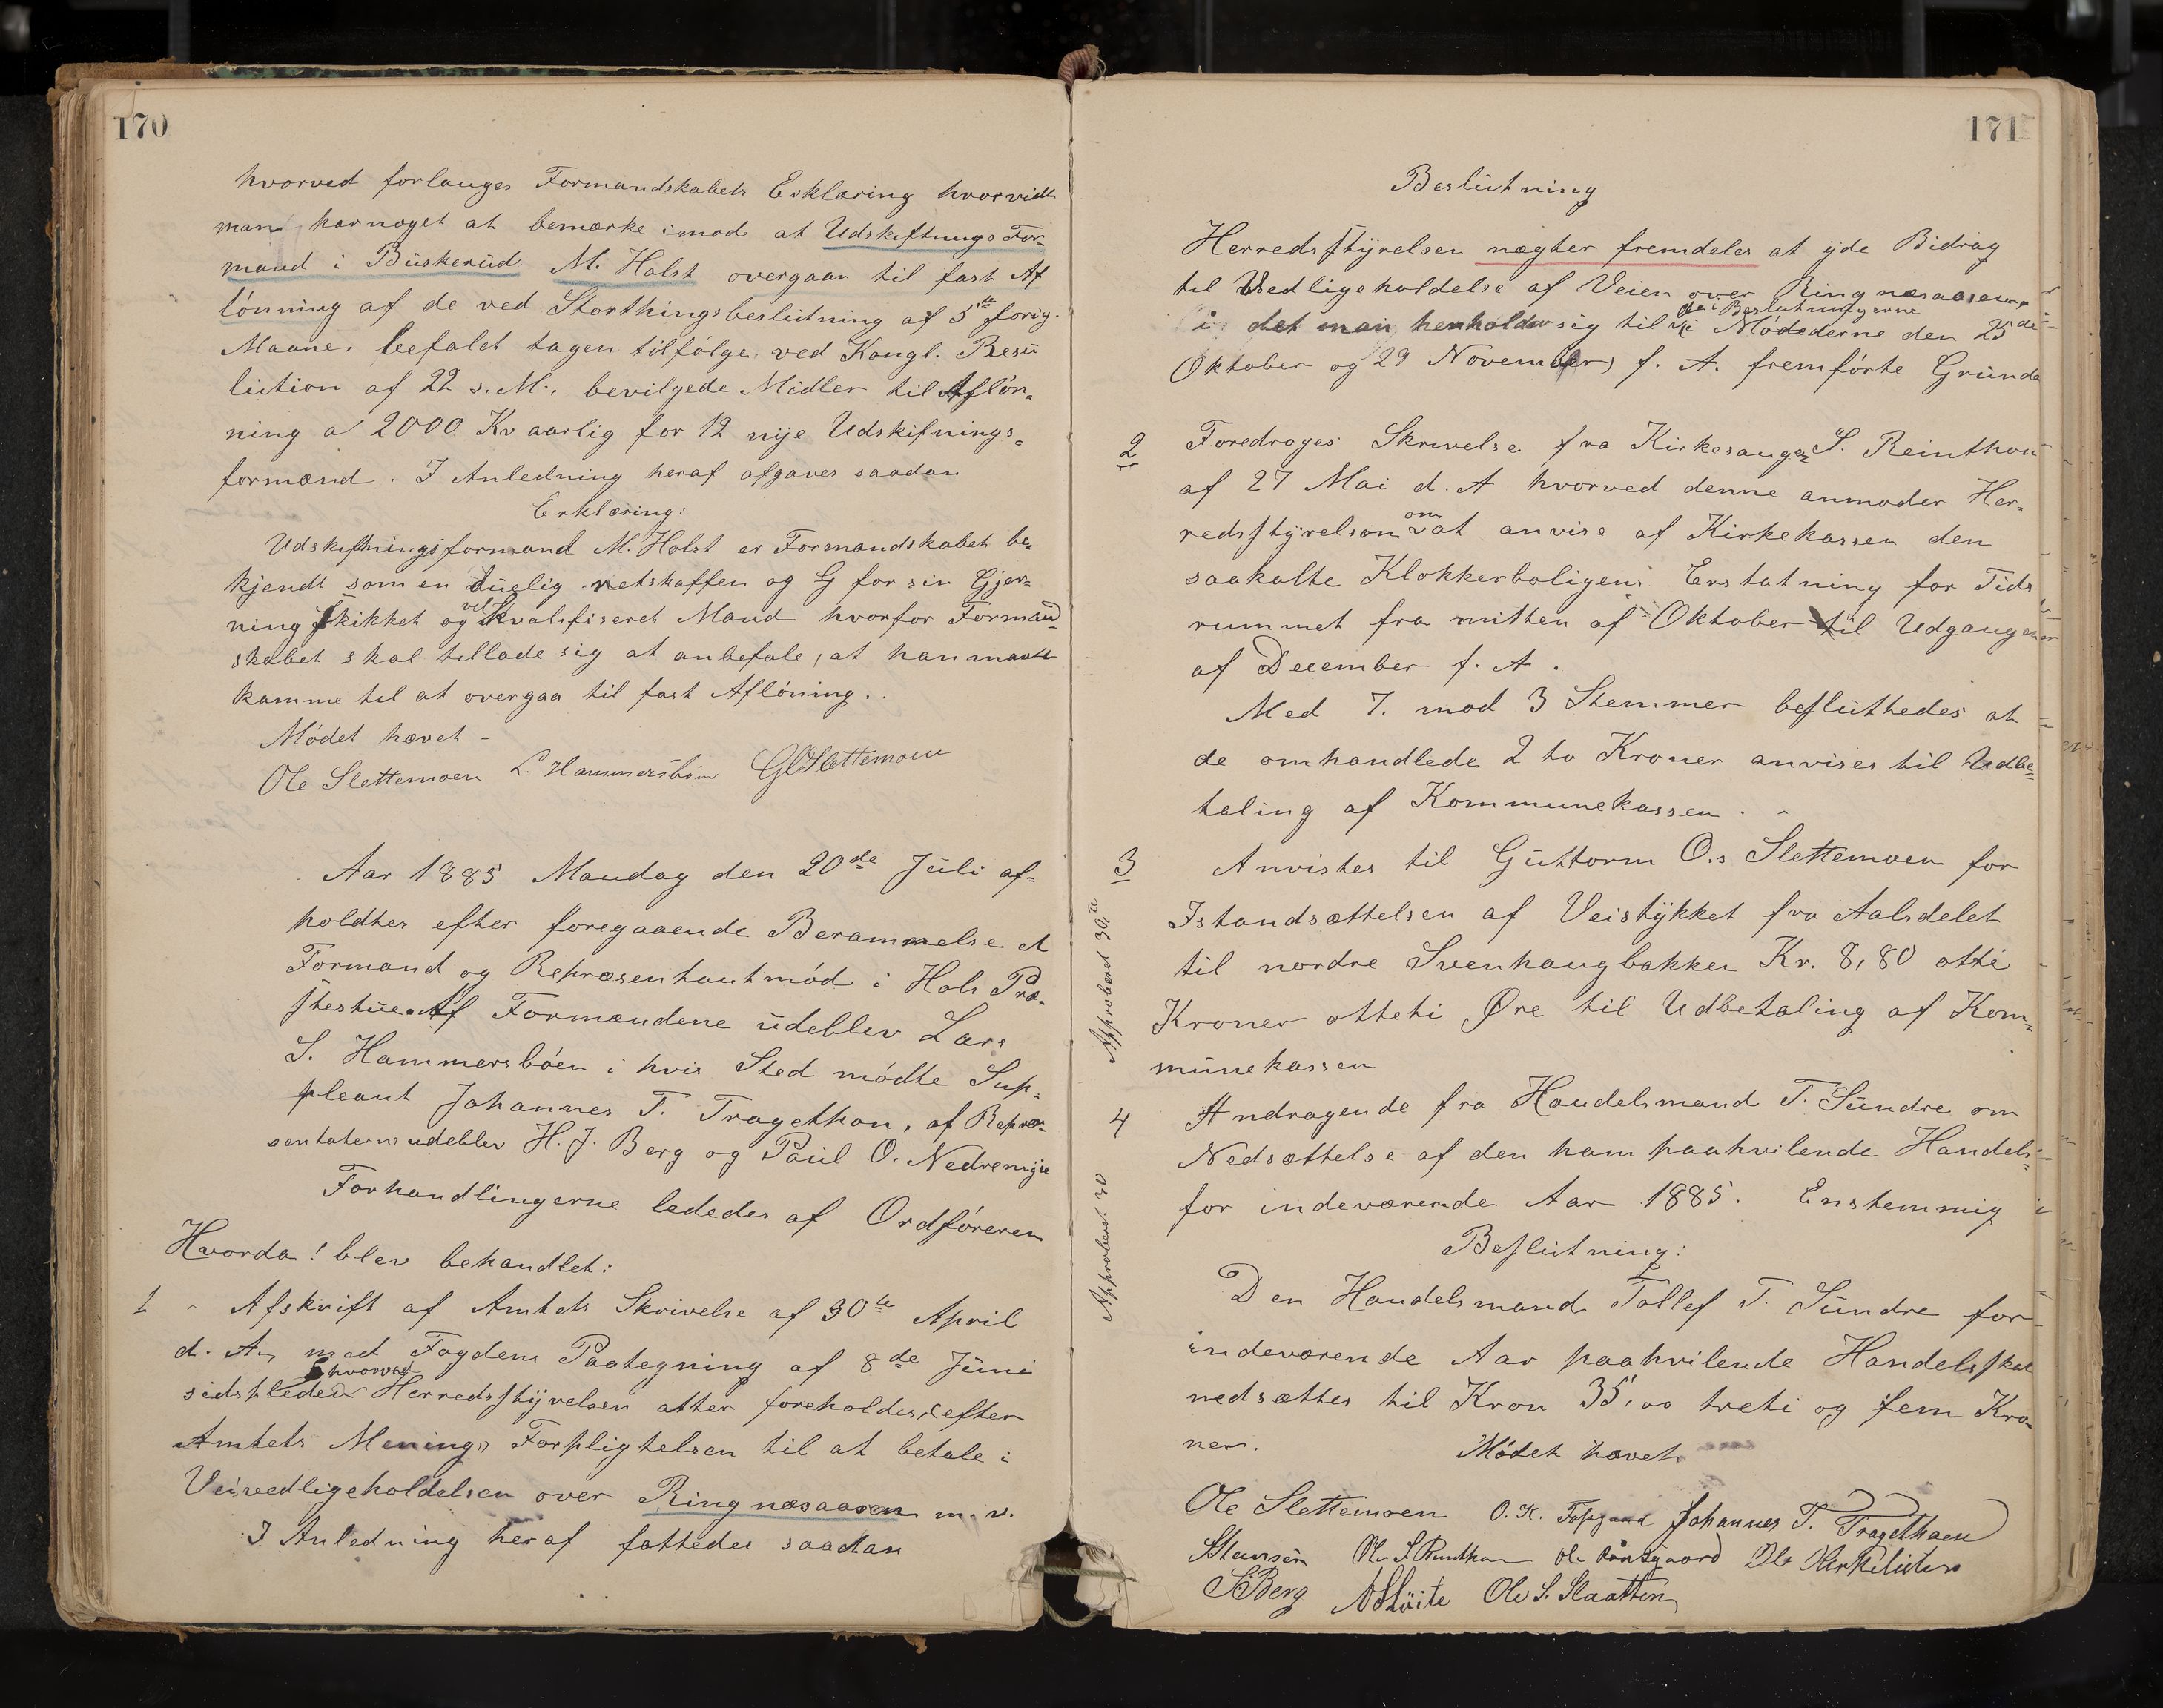 170
hvorved forlanges Formandskabets Erklæring hvorvidt
man har noget at bemærke imod at Udskiftnings For-
mand i Buskerud M. Holst overgaar til fast Af
lönning af de ved Storthingsbeslutning af 5te forig.
Maaned befalet tagen tilfølge, ved Kongl. Resu
lution af 22 s. M., bevilgede Midler til Aflön-
ning a 2000 Kr aarlig for 12 nye Udskifnings-
formænd. I Anledning heraf afgaves saadan
Erklæring:
Udskiftningsformand M. Holst er Formandskabet be-
kjendt som en duelig retskaffen og for sin Gjer-
ning skikket og vel kvalifiseret Mand hvorfor Forman-
skabet skal tillade sig at anbefale, at han maatte
komme til at overgaa til fast Aflöning..
Mödet hævet -
Ole Slettemoen L. Hammersböen GOSlettemoen
Aar 1885 Mandag den 20de Juli af-
holdtes efter foregaaende Berammelse et
Formand og Repræsentantmöd i Hols Præ-
stestue. Af Formændene udeblev Lars
S. Hammersböen i hvis Sted mödte Sup-
pleant Johannes T. Tragethon, af Repræ-
sentaterne udeblev H. J. Berg og Paul O. Nedremyr
Forhandlingerne lededes af Ordföreren
Hvorda! blev behandlet:
1 - Afskrift af Amtets Skrivelse af 30te April
d. A., med Fogdens Paategning af 8de Juni
sidstleden hvorved Herredsstyrelsen atter foreholdes, (efter
Amtets Mening) Forpligtelsen til at betale i
Veivedligeholdelsen over Ringnesaasen m. v.
I Anledning heraf fattedes saadan
171
Beslutning
Herredsstyrelsen nægter fremdeles at yde Bidrag
til Vedligeholdelse af Veien over Ringnesaasen
i det man henholder sig til de i Beslutningerne i Mödederne den 25de
Oktober og 29 November f. A. fremförte Grunde
2 Foredroges Skrivelse fra Kirkesanger S. Reinthon
af 27 Mai d. A hvorved denne anmoder Her-
redsstyrelsen om at anvise af Kirkekassen den
saakalte Klokkerboligens Erstatning for Tids
rummet fra mitten af Oktober til Udgangen
af December f. A.
Med 7. mod 3 Stemmer besluttedes at
de omhandlede 2 to Kroner anvises til Udbe-
taling af Kommunekassen.
3 Anvistes til Guttorm O.s Slettemoen for
Istandsættelsen af Veistykket fra Aalsdelet
til nordre Svenhaugbakken Kr. 8,80 otte
Kroner otteti Øre til Udbetaling af Kom-
munekassen
Approberet 30te
4 Andragende fra Handelsmand T. Sundre om
Nedsættelse af den ham paahvilende Handels-
for indeværende Aar 1885. Enstemmig
Approberet 30
Beslutning:
Den Handelsmand Tollef T. Sundre for
indeværende Aar paahvilende Handelsskat
nedsættes til Kron 35,00 treti og fem Kro-
ner.
Mödet hævet
Ole Slettemoen O. K. Johannes T. Tragethaen
Ole S. Ole
SBerg Ole S. Slaatten